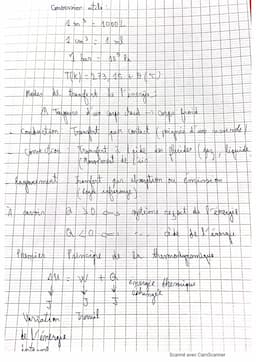 Conversion utile :
1 m³ = 1000 L
1 cm³ = 1 ml
1 bar = 10⁵ Pa
T(K) = 273,15 + θ(°C)
Modes de transfert de l'énergie :
Toujours d'un corps chaud → corps froid
- Conduction : Transfert par contact (poignée d'une casserole)
- Convection : Transfert à l'aide de fluides (gaz, liquide)
(Mouvement de l'air)
- Rayonnement : Transfert par absorption ou émission
À savoir Q > 0 <=> système reçoit de l'énergie
Q < 0 <=> " cède de l'énergie
Premier Principe de la thermodynamique
ΔU = W + Q énergie thermique
échangée
J J J
Variation Travail
de l'énergie
interne
Scanné avec CamScanner